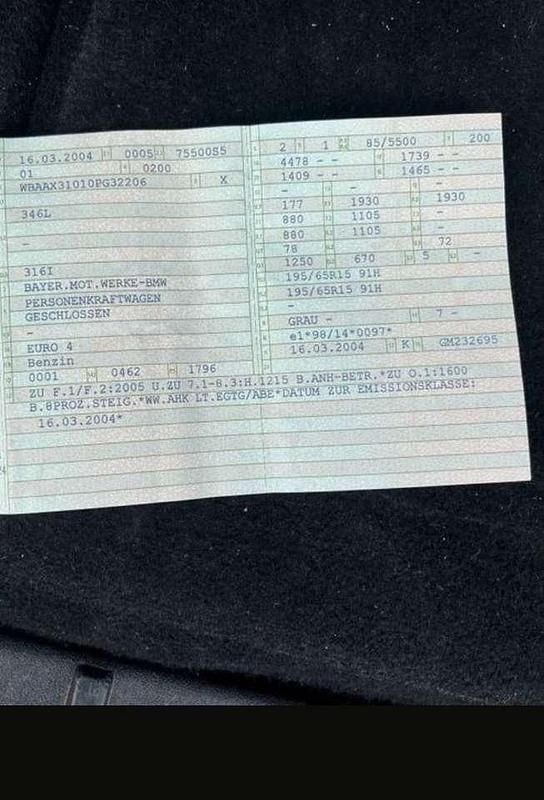 16.03.2004 0005 7550055
01 0200
WBAAX31010PG32206 X
346L
-
316I
BAYER.MOT.WERKE-BMW
PERSONENKRAFTWAGEN
GESCHLOSSEN
-
EURO 4
Benzin
0001 0462 1796
2 1 85/5500 200
4478 - - 1739 - -
1409 - - 1465 - -
- - -
177 1930 1930
880 1105 -
880 1105 -
78 - 72
1250 670 5 -
195/65R15 91H
195/65R15 91H
-
GRAU - 7 -
e1*98/14*0097*
16.03.2004 K GM232695
ZU F.1/F.2:2005 U.ZU 7.1-8.3:H.1215 B.ANH-BETR.*ZU O.1:1600
B.8PROZ.STEIG.*WW.AHK LT.EGTG/ABE*DATUM ZUR EMISSIONSKLASSE:
16.03.2004*